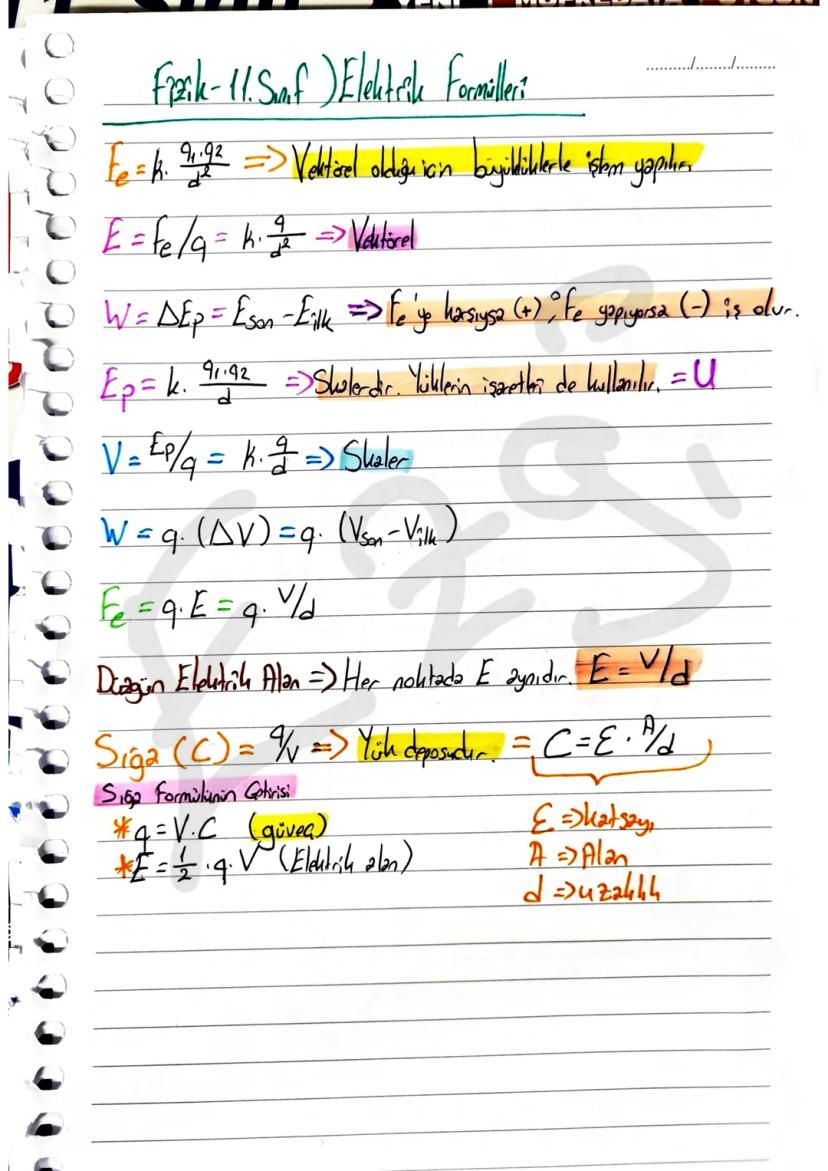 YENİ MÜFREDATA UYGUN
Fizik-11.Sınıf ) Elektrik Formülleri
......../......../........
Fe = k. q1.q2/d² => Vektörel olduğu için büyüklüklerle işlem yapılır.
E = Fe/q = k. q/d² => Vektörel
W = ΔEp = Eson - Eilk => Fe'ye karşıysa (+), Fe yapıyorsa (-) iş olur.
Ep = k. q1.q2/d => Skalerdir. Yüklerin işaretleri de kullanılır. = U
V = Ep/q = k. q/d => Skaler
W = q. (ΔV) = q. (Vson - Vilk)
Fe = q.E = q. V/d
Düzgün Elektrik Alan => Her noktada E aynıdır. E = V/d
Sığa (C) = q/V => Yük deposudur. = C = Ɛ . A/d
Sığa Formülünün Getirisi
*q = V.C (güveç)
*E = 1/2 .q.V (Elektrik alan)
Ɛ => katsayı
A => Alan
d => uzaklık
Ezgi